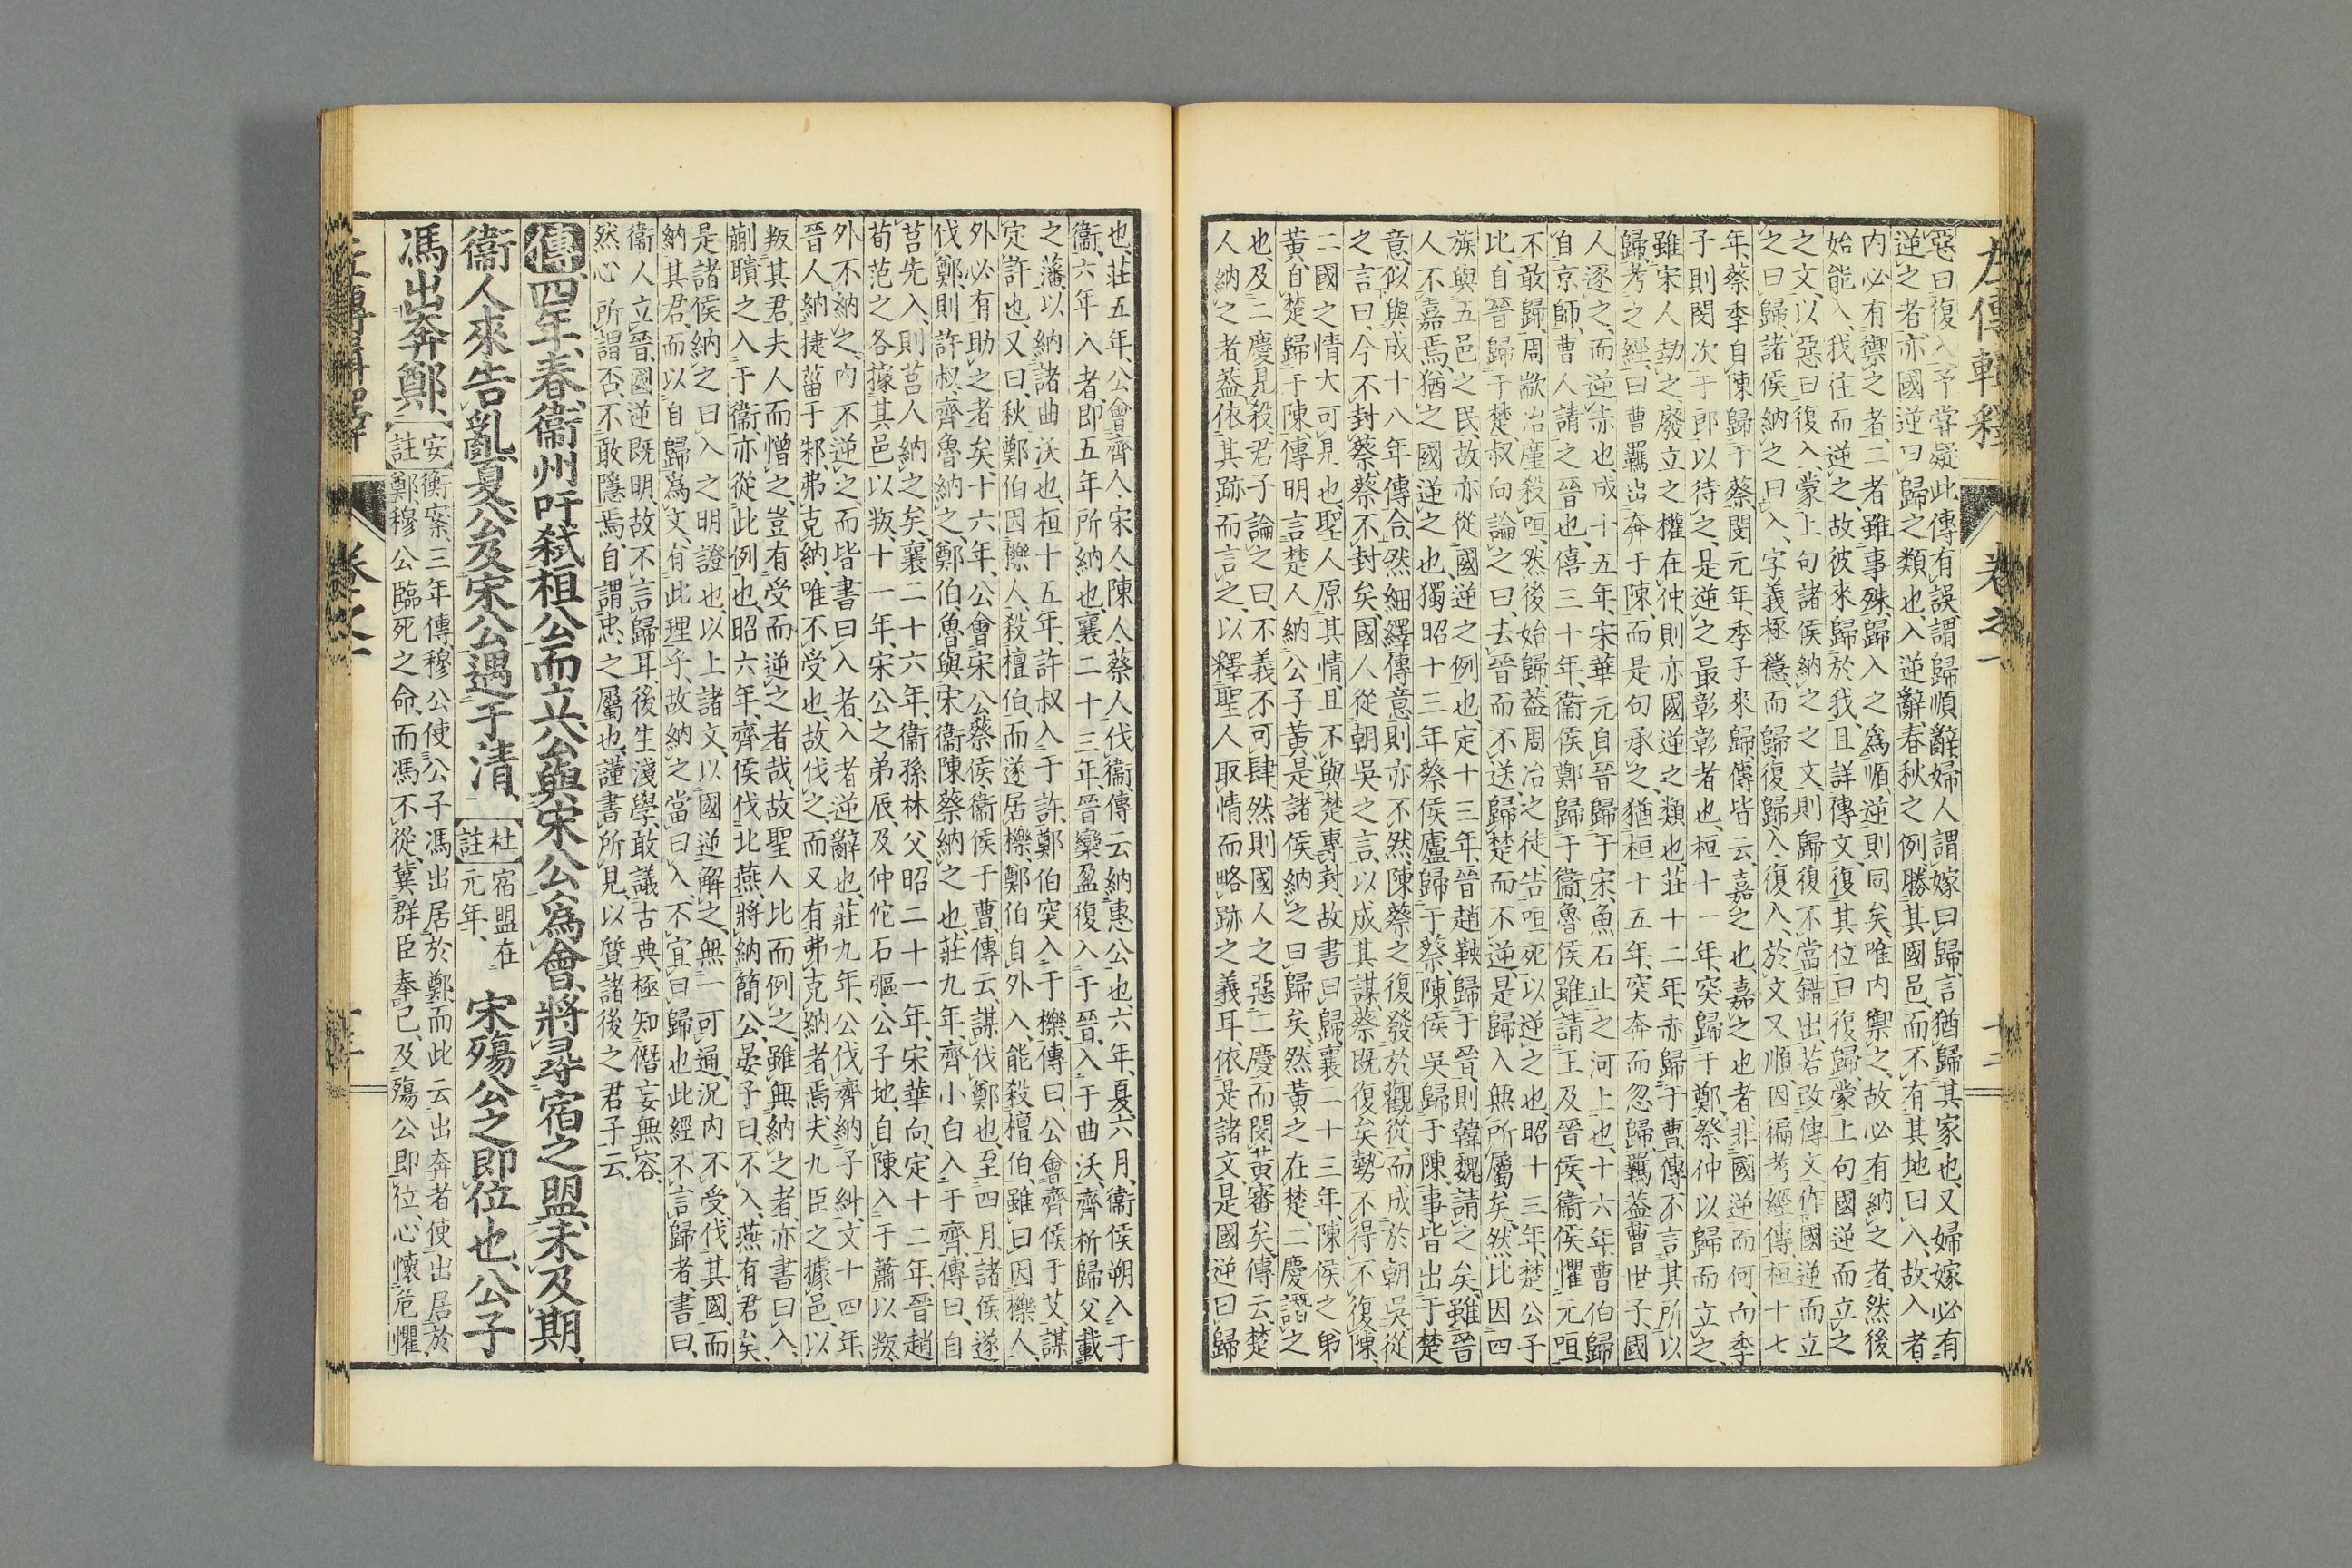 左傳輯釋 卷之一 十二
惡曰復入予嘗疑此傳有誤謂歸順辭婦人謂嫁曰歸言猶歸其家也又婦嫁必有
逆之者亦國逆曰歸之類也入逆辭春秋之例勝其國邑而不有其地曰入故入者
内必有禦之者二者雖事殊歸入之爲順逆則同矣唯内禦之故必有納之者然後
始能入我往而逆之故彼來歸於我且詳傳文復其位曰復歸蒙上句國逆而立之
之文以惡曰復入蒙上句諸侯納之之文則歸復不當錯出若改傳文作國逆而立
之曰歸諸侯納之曰入字義極穩而歸復歸入復入於文又順因徧考經傳桓十七
年蔡季自陳歸于蔡閔元年季子來歸傳皆云嘉之也嘉之也者非國逆而何而季
子則閔次于郎以待之是逆之最彰彰者也桓十一年突歸于鄭祭仲以歸而立之
雖宋人劫之廢立之權在仲則亦國逆之類也莊十二年赤歸于曹傳不言其所以
歸考之經曰曹羈出奔于陳而是句承之猶桓十五年突奔而忽歸羈葢曹世子國
人逐之而逆赤也成十五年宋華元自晉歸于宋魚石止之河上也十六年曹伯歸
自京師曹人請之晉也僖三十年衞侯鄭歸于衞魯侯雖請王及晉侯衞侯懼元咺
不敢歸周歂冶廑殺咺然後始歸葢周冶之徒告咺死以逆之也昭十三年楚公子
比自晉歸于楚叔向論之曰去晉而不送歸楚而不逆是歸入無所屬矣然比因四
族與五邑之民故亦從國逆之例也定十三年晉趙鞅歸于晉則韓魏請之矣雖晉
人不嘉焉猶之國逆之也獨昭十三年蔡侯廬歸于蔡陳侯吳歸于陳事皆出于楚
意似與成十八年傳合然細繹傳意則亦不然陳蔡之復發於觀從而成於朝吳從
之言曰今不封蔡蔡不封矣國人從朝吳之言以成其謀蔡既復矣勢不得不復陳
二國之情大可見也聖人原其情且不與楚專封故書曰歸襄二十三年陳侯之弟
黃自楚歸于陳傳明言楚人納公子黃是諸侯納之曰歸矣然黃之在楚二慶譖之
也及二慶見殺君子論之曰不義不可肆然則國人之惡二慶而閔黃審矣傳云楚
人納之者葢依其跡而言之以釋聖人取情而略跡之義耳依是諸文是國逆曰歸
也莊五年公會齊人宋人陳人蔡人伐衞傳云納惠公也六年夏六月衞侯朔入于
衞六年入者即五年所納也襄二十三年晉欒盈復入于晉入于曲沃齊析歸父載
之藩以納諸曲沃也桓十五年許叔入于許鄭伯突入于櫟傳曰公會齊侯于艾謀
定許也又曰秋鄭伯因櫟人殺檀伯而遂居櫟鄭伯自外入能殺檀伯雖曰因櫟人
外必有助之者矣十六年公會宋公蔡侯衞侯于曹傳云謀伐鄭也至四月諸侯遂
伐鄭則許叔齊魯納之鄭伯魯與宋衞陳蔡納之也莊九年齊小白入于齊傳曰自
莒先入則莒人納之矣襄二十六年衞孫林父昭二十一年宋華向定十二年晉趙
荀范之各據其邑以叛十一年宋公之弟辰及仲佗石彄公子地自陳入于蕭以叛
外不納之内不逆之而皆書曰入者入者逆辭也莊九年公伐齊納子糾文十四年
晉人納捷菑于邾弗克納唯不受也故伐之而又有弗克納者焉夫九臣之據邑以
叛其君夫人而憎之豈有受而逆之者哉故聖人比而例之雖無納之者亦書曰入
蒯聵之入于衞亦從此例也昭六年齊侯伐北燕將納簡公晏子曰不入燕有君矣
是諸侯納之曰入之明證也以上諸文以國逆解之無一可通況内不受伐其國而
納其君而以自歸爲文有此理乎故納之當曰入不宜曰歸也此經不言歸者書曰
衞人立晉國逆既明故不言歸耳後生淺學敢議古典極知僭妄無容
然心所謂否不敢隱焉自謂忠之屬也謹書所見以質諸後之君子云
傳四年春衞州吁弑桓公而立公與宋公爲會將尋宿之盟未及期
衞人來告亂夏公及宋公遇于清 杜註 宿盟在元年 宋殤公之即位也公子
馮出奔鄭 安註 衡案三年傳穆公使公子馮出居於鄭而此云出奔者使出居於
鄭穆公臨死之命而馮不從冀群臣奉己及殤公即位心懷危懼
卷之一